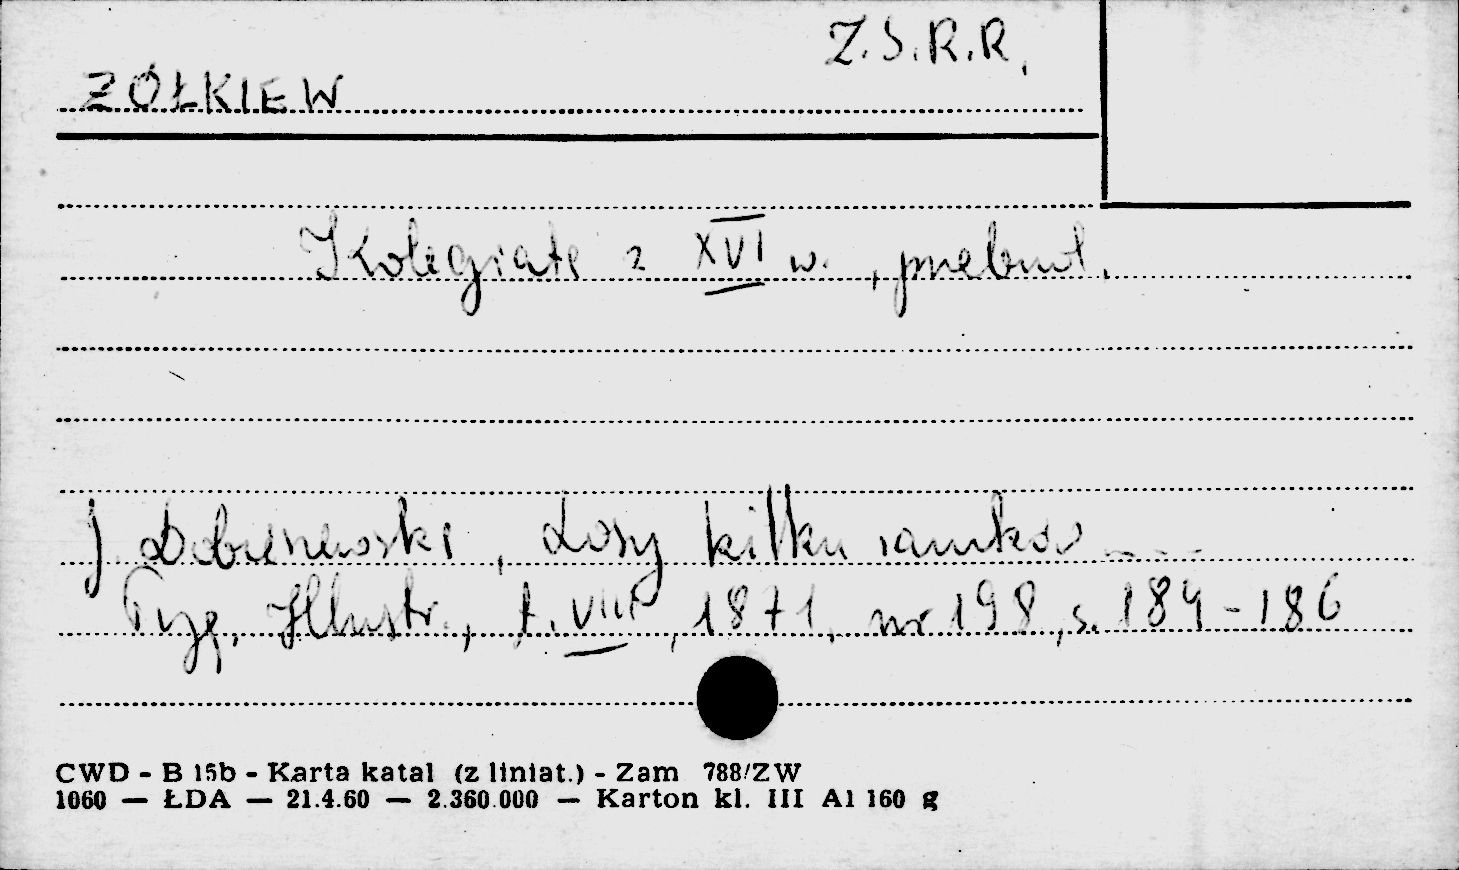 Z.S.R.R.
ŻÓŁKIEW
Kolegiata z XVI w., przebud.
J Dobieszewski, Losy kilku zamków ....
Tyg. Illustr., t. VIII, 1871, nr 198, s. 184-186
CWD - B 15b - Karta katal (z liniat.) - Zam 788/ZW
1060 — ŁDA — 21.4.60 — 2.360.000 — Karton kl. III A1 160 g